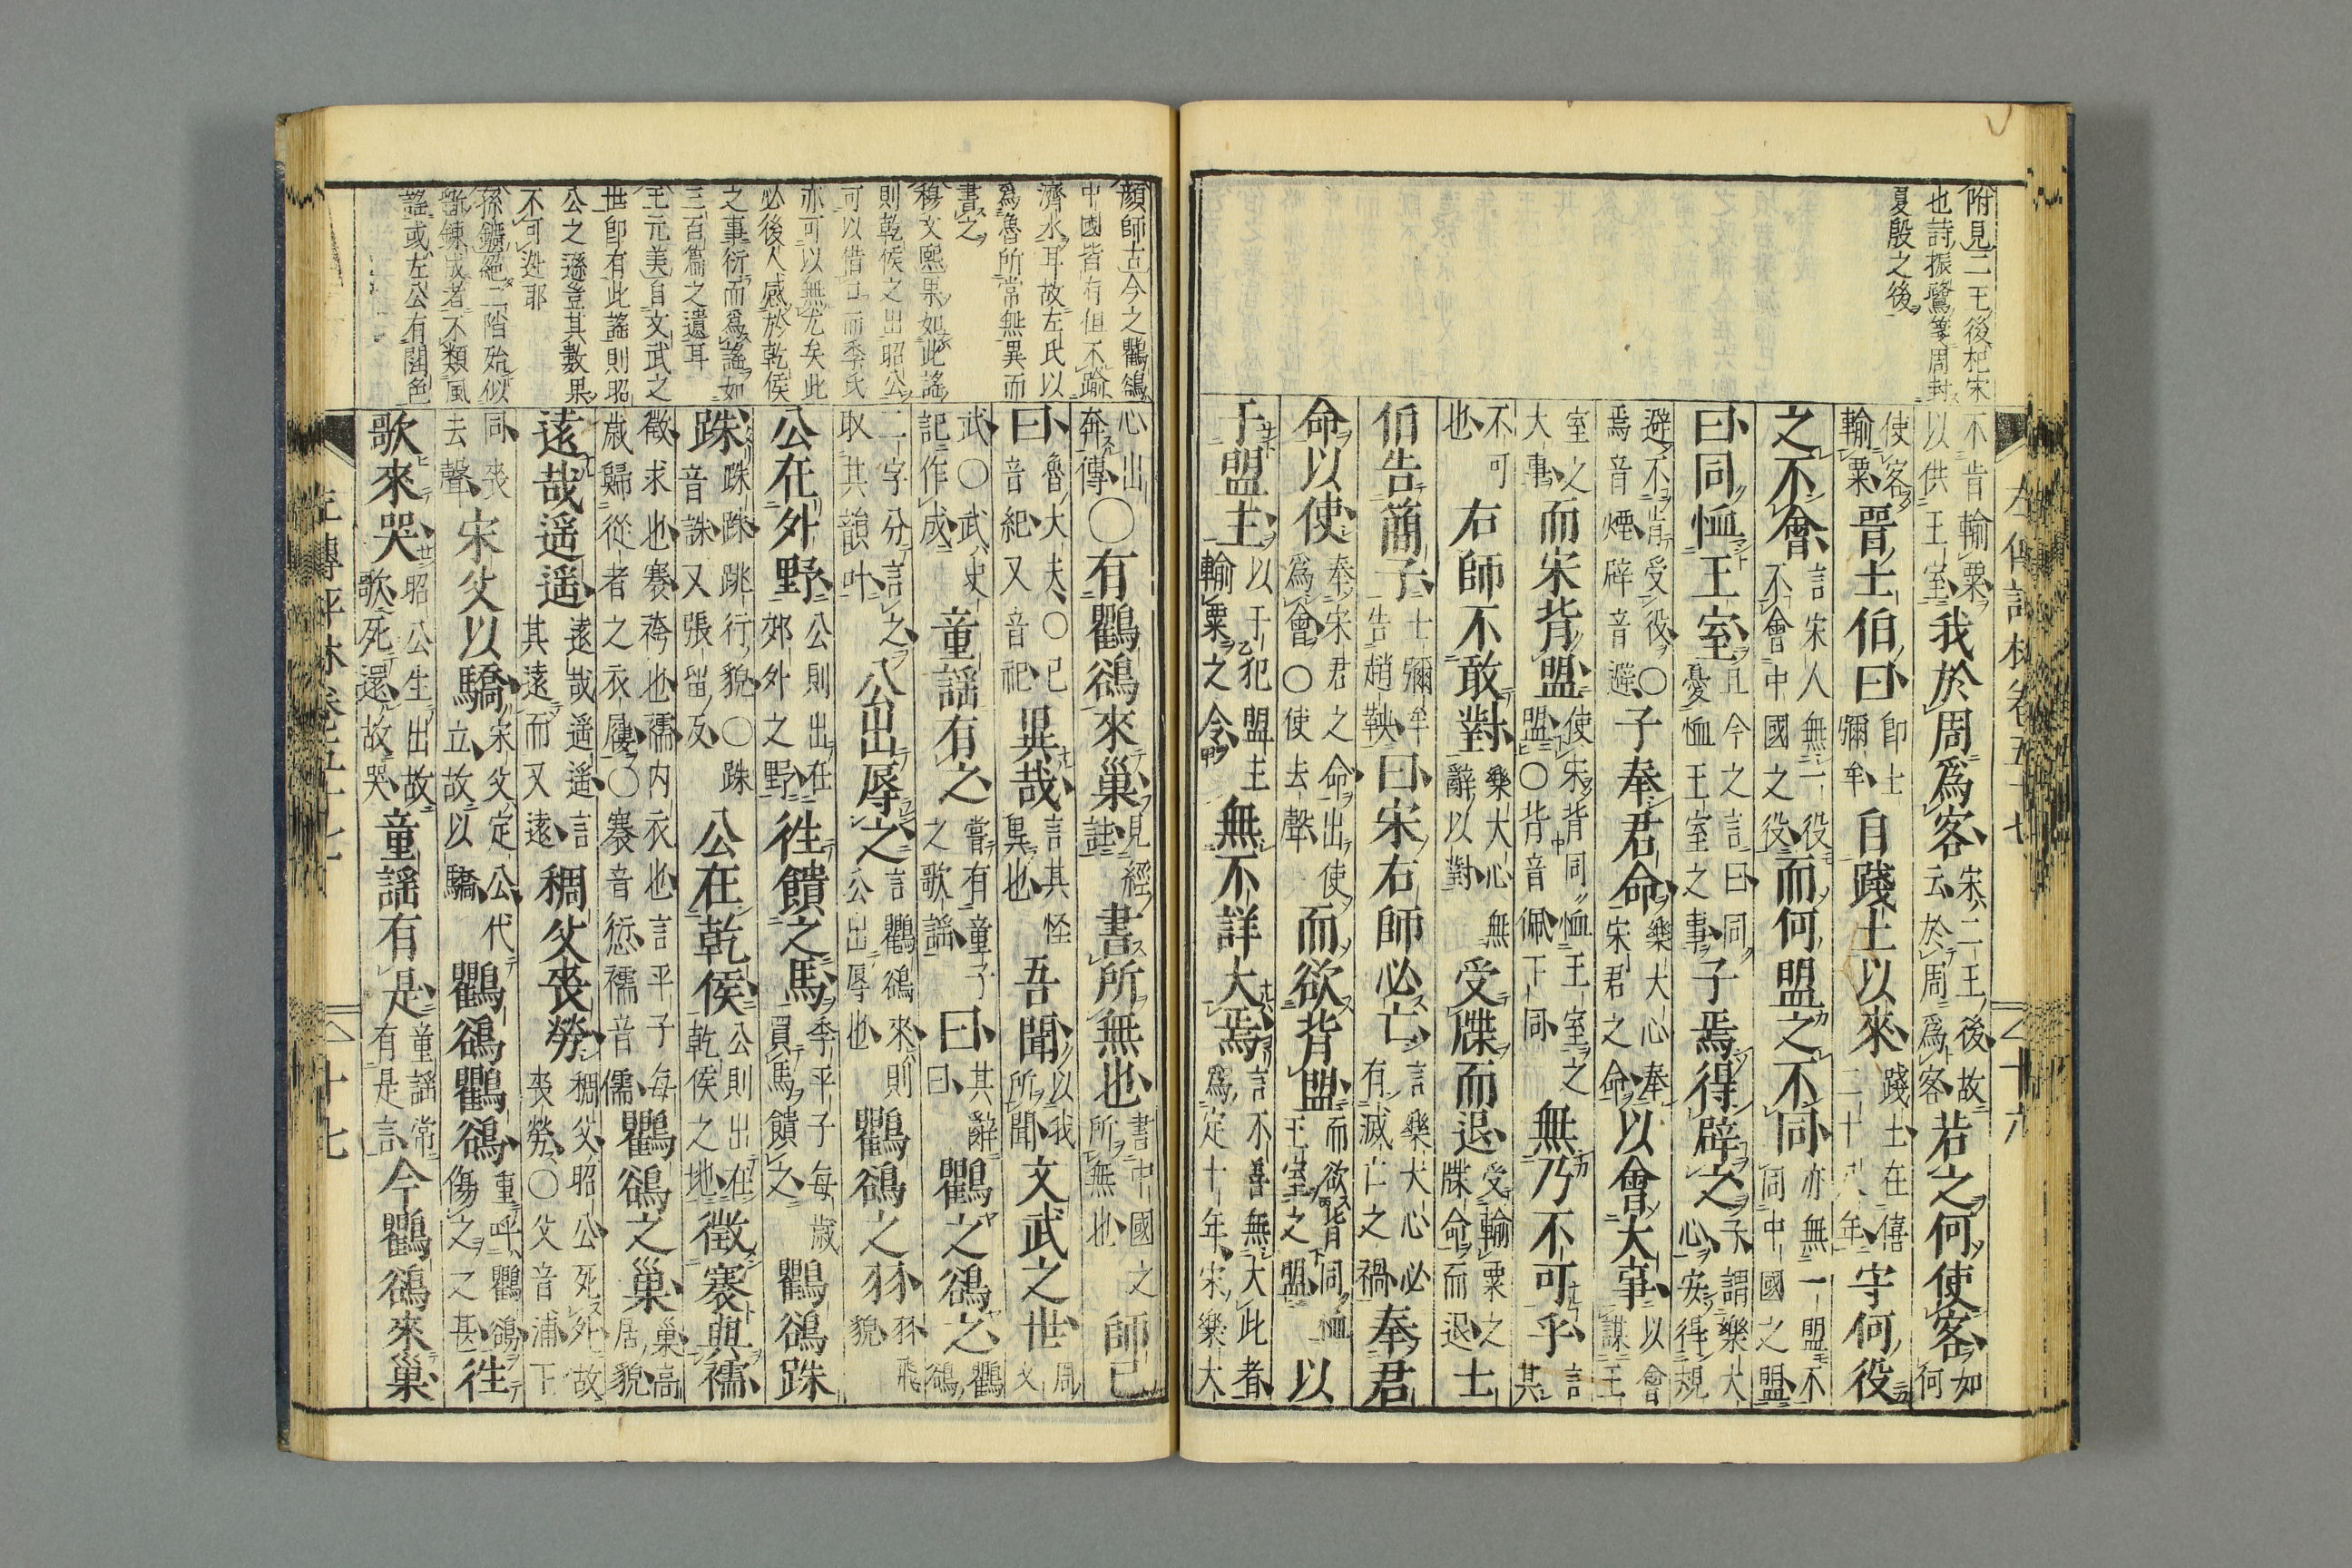 附見二王後杞宋
也詩振鷺箋周封
夏殷之後
不肯輸粟以供王室我於周爲客宋二王後故云於周爲客若之何使客如何
使客輸粟晉士伯曰即士彌牟自踐土以來踐土在僖二十八年宋何役
之不會言宋人無一役不會中國之役而何盟之不同亦無一盟不同中國之盟
曰同恤王室且今之言曰同憂恤王室之事子焉得辟之子謂樂大心安得規
避不肯受役○焉音煙辟音避子奉君命樂大心奉宋君之命以會大事以會謀王
室之大事而宋背盟使宋背同恤王室之盟○背音佩下同無乃不可乎言其
不可也右師不敢對樂大心無辭以對受牒而退受輸粟之牒命而退士
伯告簡子士彌牟告趙鞅曰宋右師必亡言樂大心必有滅亡之禍奉君
命以使奉宋君之命出使爲會○使去聲而欲背盟而欲背同恤王室之盟以
干盟主以干犯盟主輸粟之令無不詳大焉言不善無大此者爲定十年宋樂大
左傳評林卷五十七
十六
顏師古今之鸜鵒
中國皆有但不踰
濟水耳故左氏以
爲魯所常無異而
書之
穆文熙果如此謠
則乾侯之出昭公
可以借口而季氏
亦可以無尤矣此
必後人感於乾侯
之事衍而爲謠如
三百篇之遺耳
王元美自文武之
世即有此謠則昭
公之遜登其數果
不可逃耶
孫鑛絕二階殆似
鍛鍊成者不類風
謠或左公有閏色
心出奔傳○有鸜鵒來巢見經註書所無也書中國之所無也師己
曰魯大夫○己音紀又音祀異哉言其怪異也吾聞以我所聞文武之世周文
武○武史記作成童謠有之嘗有童子之歌謠曰其辭曰鸜之鵒之鸜鵒
二字分言之取其韻叶公出辱之言鸜鵒來則公出辱也鸜鵒之羽羽飛貌
公在外野公則出在郊外之野往饋之馬季平子每歲買馬饋之鸜鵒跦
跦跦跦跳行貌○跦音誅又張留反公在乾侯公則出在乾侯之地徵褰與襦
徵求也褰袴也襦内衣也言平子每歲歸從者之衣屨○褰音愆襦音儒鸜鵒之巢巢高居貌
遠哉遥遥遠哉遥遥言其遠而又遠稠父喪勞稠父昭公死外故喪勞○父音浦下
同喪去聲宋父以驕宋父定公代立故以驕鸜鵒鸜鵒重呼鸜鵒傷之之甚往
歌來哭昭公生出故歌死還故哭童謠有是童謠常有是言今鸜鵒來巢
左傳評林卷五十七
十七